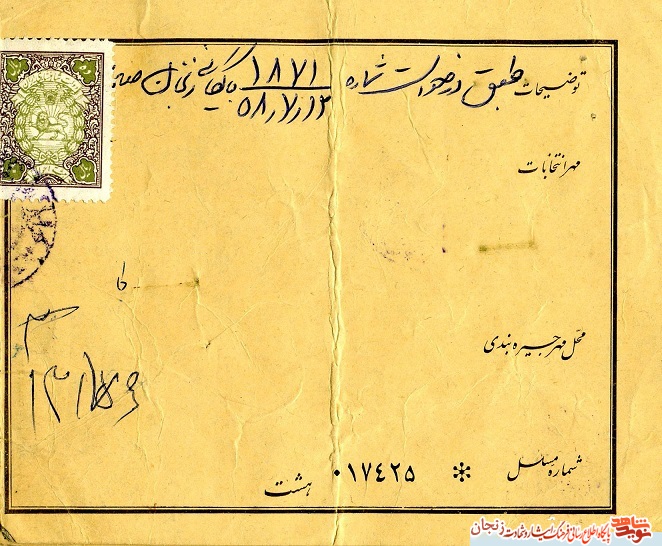 توضیحات طبق درخواست شماره ۱۸۷۱ بایگانی زنجان
۵۸/۷/۱۲
مهر انتخابات
محل مهر جیره بندی
شماره مسلسل * ۰۱۷۴۲۵ هشت
نوید شاهد پایگاه اطلاع رسانی فرهنگ ایثار و شهادت زنجان